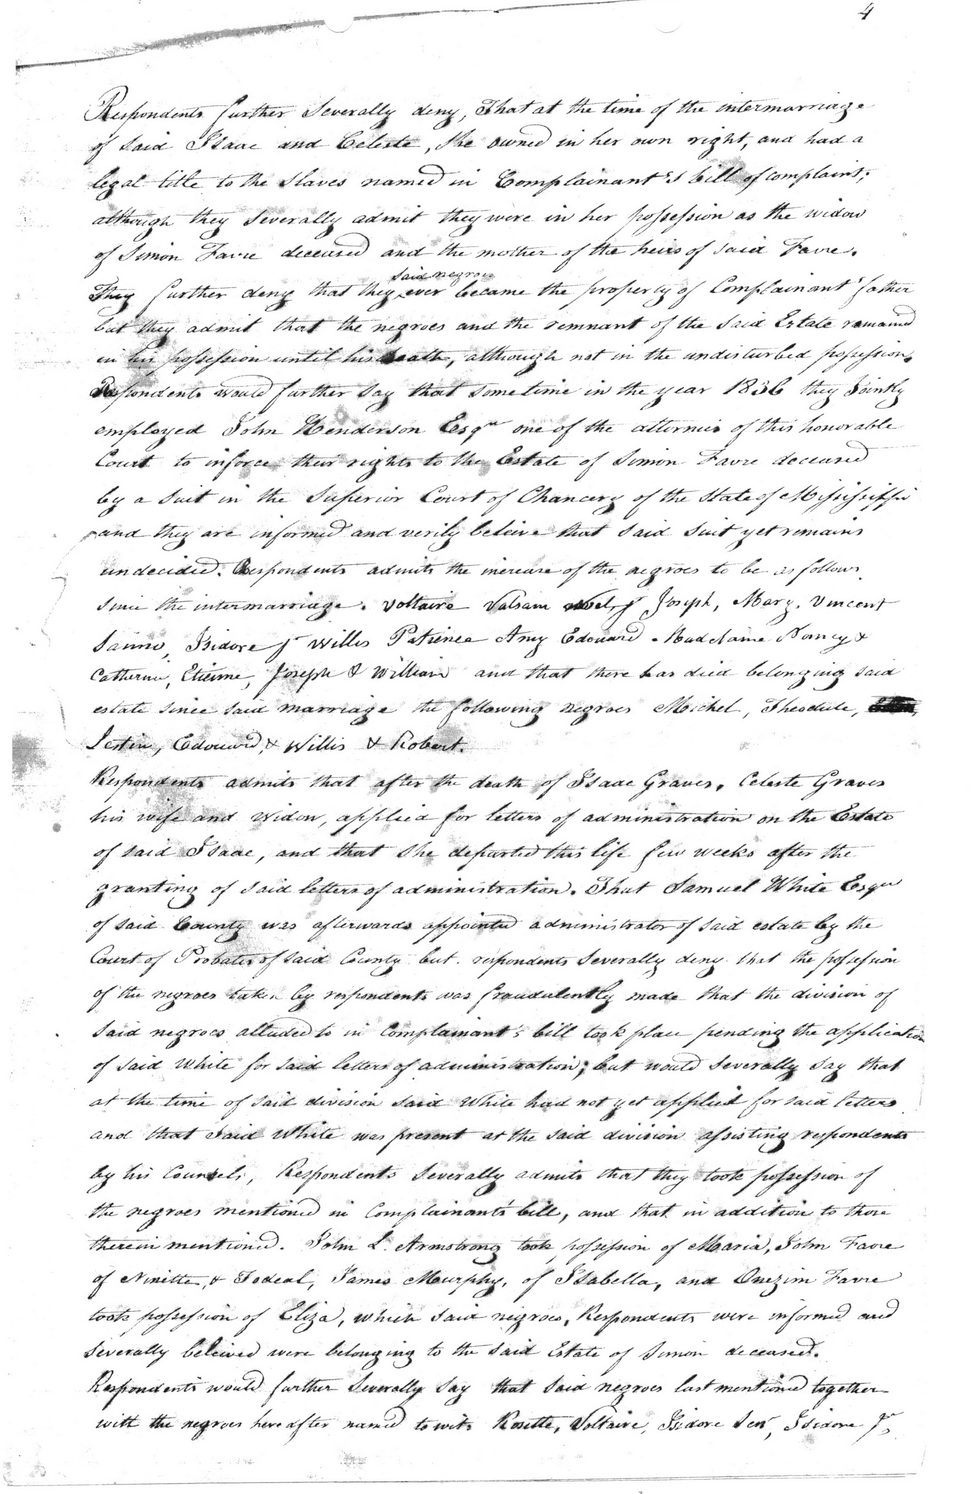 4
Respondents further Severally deny, That at the time of the intermarriage
of said Isaac and Celeste, She owned in her own right, and had a
legal title to the slaves named in Complainant's bill of complaint,
although they Severally admit they were in her possession as the widow
of Simon Favre deceased and the mother of the heirs of said Favre.
said negroes
They further deny that they ever became the property of Complainant father
but they admit that the negroes and the remnant of the said Estate remained
in his possession until his death, although not in the undisturbed possession.
Respondents would further say that sometime in the year 1836 they Jointly
employed John Henderson Esqr one of the attornies of this honorable
Court to inforce their rights to the Estate of Simon Favre deceased
by a suit in the Superior Court of Chancery of the State of Mississippi
and they are informed and verily beleive that said suit yet remains
undecided. Respondents admits the increase of the negroes to be as follows
since the intermarriage. Voltaire Valsain Joseph, Mary, Vincent
Isidore Jr Willis Patience Amy Edouard Madelaine Nancy &
Catherine, Etienne, Joseph & William and that there has died belonging said
estate since said marriage the following negroes Michel, Theodule,
Edouard, & Willis & Robert.
Respondents admits that after the death of Isaac Graves, Celeste Graves
his wife and widow, applied for letters of administration on the Estate
of said Isaac, and that She departed this life few weeks after the
granting of said letters of administration. That Samuel White Esqr
of said County was afterwards appointed administrator of said estate by the
Court of Probates of said County but respondents Severally deny that the possession
of the negroes taken by respondents was fraudulently made that the division of
said negroes alluded to in Complainant's bill took place pending the application
of said White for said letters of administration; but would Severally say that
at the time of said division said White had not yet applied for said letters
and that said White was present at the said division assisting respondents
by his Counsels, Respondents Severally admits that they took possession of
the negroes mentioned in Complainant's bill, and that in addition to those
therein mentioned. John L. Armstrong took possession of Maria, John Favre
of Ninette, & Fedeal, James Murphy, of Isabella, and Onezim Favre
took possession of Eliza, which said negroes, Respondents were informed and
Severally beleived were belonging to the said Estate of Simon deceased.
Respondents would further Severally say that said negroes last mentioned together
with the negroes hereafter named to wit: Rosette, Voltaire, Isidore Senr, Isidore Jr,